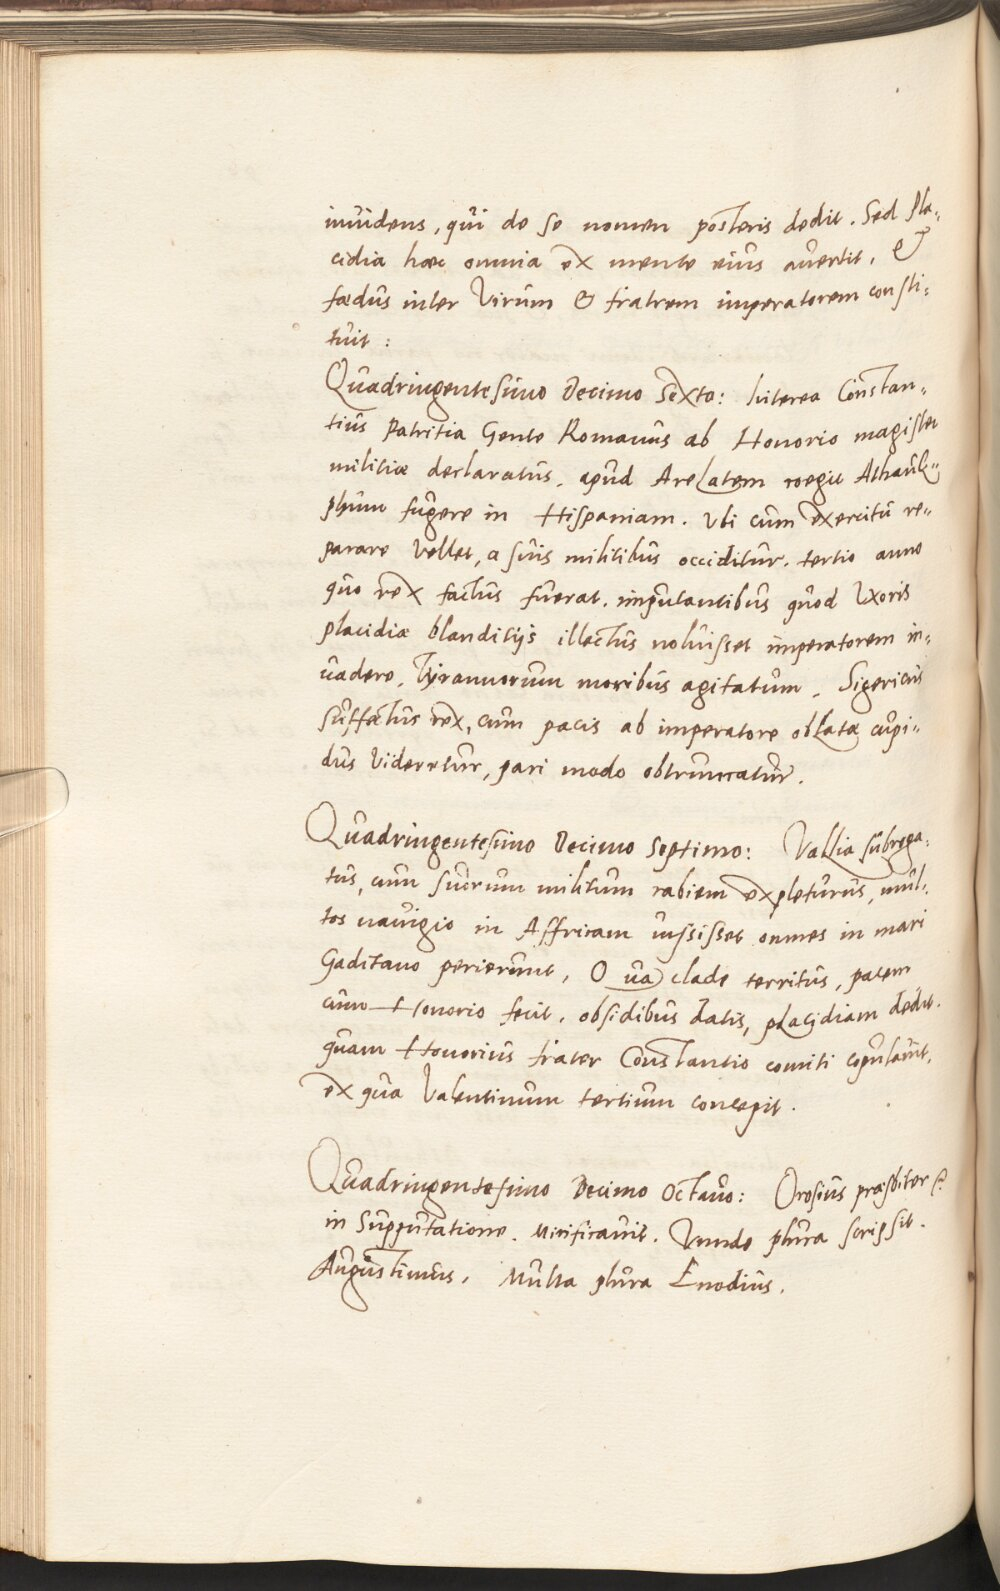 inuidens, qui de se nomen posteris dedit. Sed Pla-
cidia hæc omnia ex mente eius auertit, &
fœdus inter Virum & fratrem imperatorem consti-
tuit:
Quadringentesimo Decimo Sexto: Interea Constan-
tius Patritia Gente Romanus ab Honorio magister
militiæ declaratus, apud Arelatem coegit Athaul-
phum fugere in Hispaniam. Vbi cum exercitū re-
parare vellet, a suis militibus occiditur. tertio anno
quo rex factus fuerat. imputantibus quod Vxoris
placidiæ blanditijs illectus noluisset imperatorem in-
uadere, Tyrannorum moribus agitatum. Sigericus
suffectus rex, cum pacis ab imperatore oblatæ cupi-
dus Videretur, pari modo obtruncatur.
Quadringentesimo Decimo Septimo: Vallia subroga-
tus, cum suorum militum rabiem expleturus, mul-
tos nauigio in Affricam iussisset omnes in mari
Gaditano perierunt, Qua clade territus, pacem
cum Honorio fecit. obsidibus datis, placidiam dedit.
quam Honorius frater Constantio comiti copulauit,
ex qua Valentinum tertium concepit.
Quadringentesimo Decimo Octauo: Orosius præsbiter
in Supputatione. Mirificauit. Vnnde plura scripsit.
Augustinus, Multa plura Enodius.